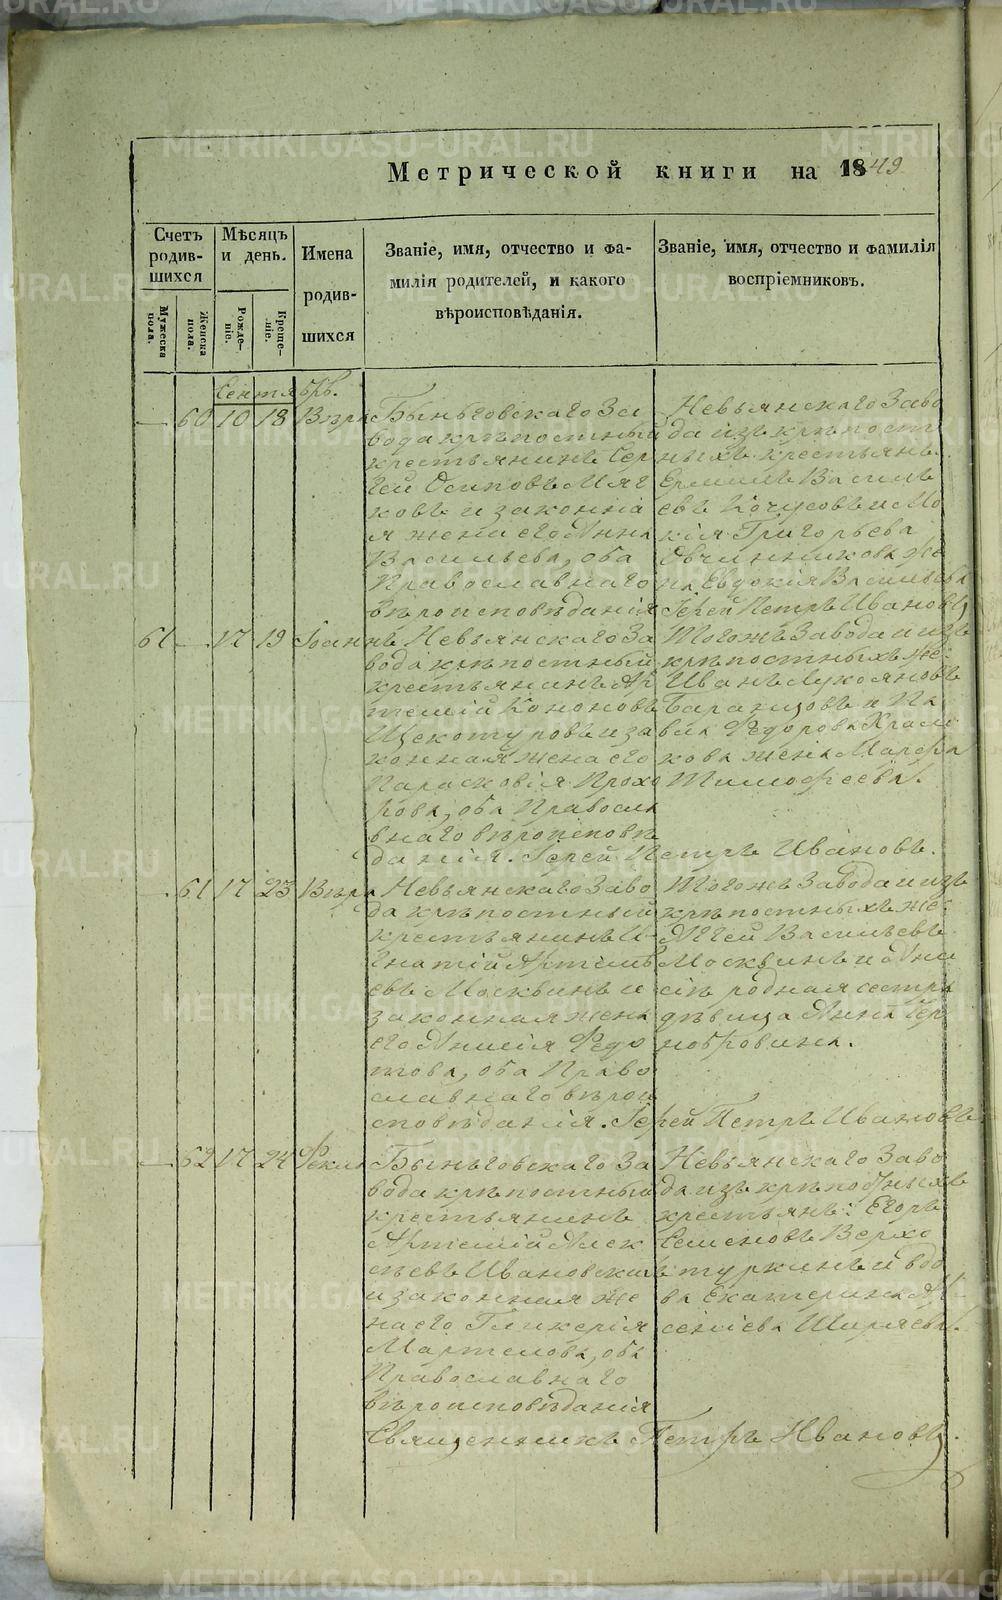 Метрической книги на 1849
Счетъ родив- шихся
Мѣсяцъ и день.
Имена родив- шихся
Званіе, имя, отчество и фа-
милія родителей, и какого
вѣроисповѣданія.
Званіе, имя, отчество и фамилія
воспріемниковъ.
Мужеска пола.
Женска пола.
Рожде- ніе.
Креще- ніе.
Сентябрь.
60 10 18 Вѣра
Быньговскаго За
вода крѣпостный
крестьянинъ Сер
гей Осиповъ Мяг
ковъ и законна
я жена его Анна
Васильева, оба
Православнаго
вѣроисповѣданія
Невьянскаго Заво
да изъ крѣпост
ныхъ крестьянъ
Ермилъ Василь
евъ Кочусовъ и Мо
кія Григорьева
Овчинникова же
на Евдокія Васильева
Іерей Петръ Ивановъ
61 17 19 Іоаннъ
Невьянскаго За
вода крѣпостный
крестьянинъ Ар
темій Кононовъ
Щекотуровъ и за
конная жена его
Парасковія Прохо
рова, оба Правосла
внаго вѣроисповѣ
данія. Іерей Петръ Ивановъ.
Тогожъ Завода и изъ
крѣпостныхъ же:
Иванъ Лукояновъ
и Па
вла Федорова Храм
кова жена Марфа
Тимофеева.
61 17 23 Вѣра
Невьянскаго Заво
да крѣпостный
крестьянинъ И-
гнатій Артемь
евъ Москвинъ и
законная жена
его Анисія Федо
това, оба Право
славнаго вѣрои
сповѣданія. Іерей Петръ Ивановъ
Тогожъ Завода и изъ
крѣпостныхъ же:
Аггей Васильевъ
Москвинъ и Ани
сіи родная сестра
дѣвица Анна Чер
нобровина.
62 17 24 Фекла
Быньговскаго За
вода крѣпостный
крестьянинъ
Артемій Алек
сѣевъ Ивановскій
и законная же
на его Гликерія
Мартемова, оба
Православнаго
вѣроисповѣданія
Невьянскаго Заво
да изъ крѣпостныхъ
крестьянъ: Егоръ
Семеновъ Верхо
туркинъ и вдо
ва Екатерина Ар
сеніева Ширяева.
Священникъ Петръ Ивановъ.
METRIKI.GASO-URAL.RU